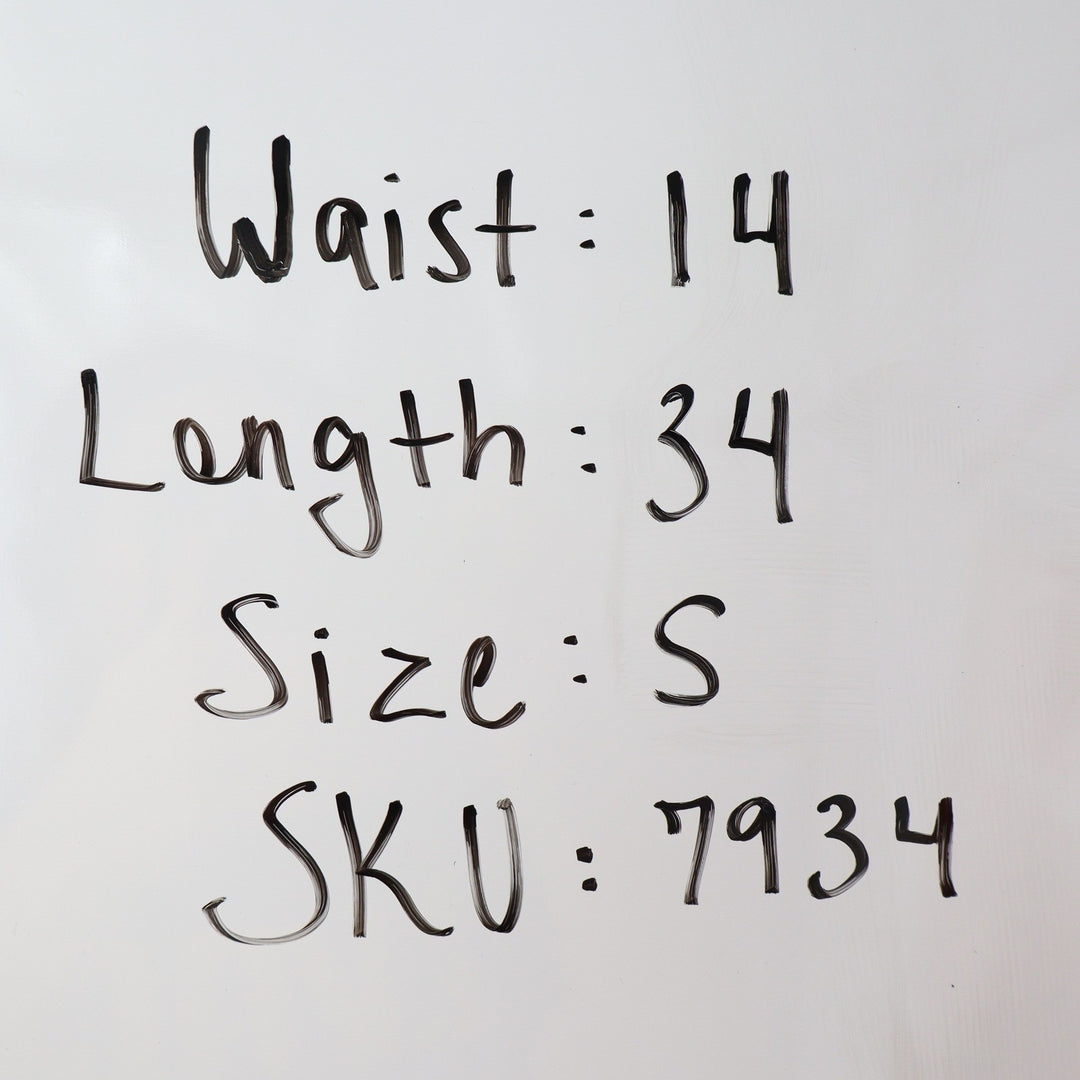 Waist: 14
Length: 34
Size: S
SKU: 7934